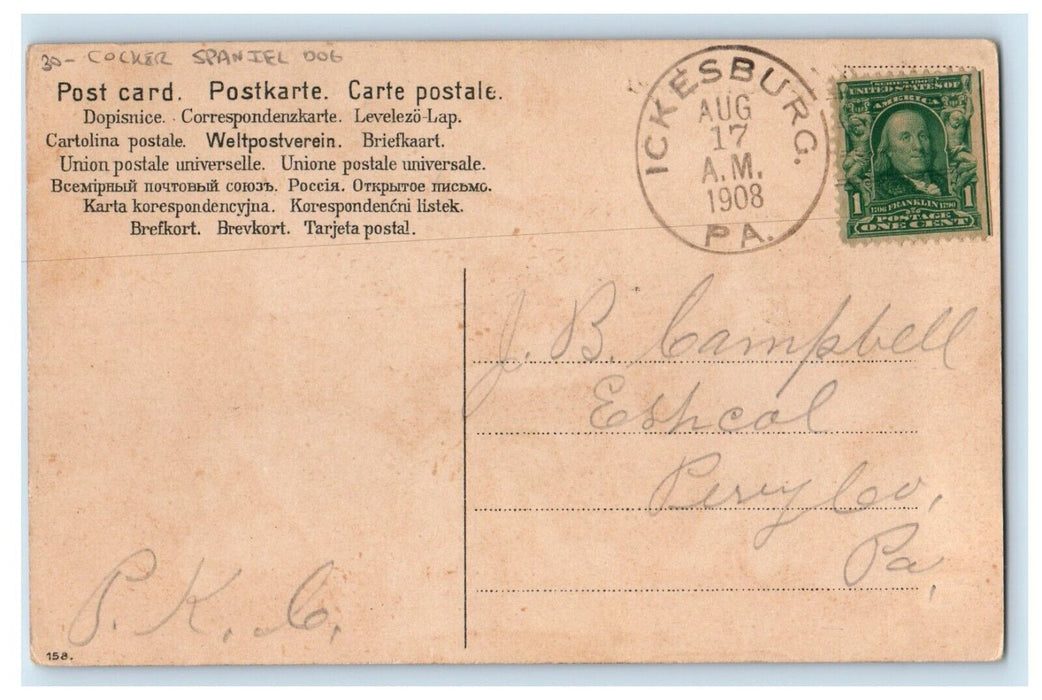 30- COCKER SPANIEL DOG
Post card. Postkarte. Carte postale.
Dopisnice. Correspondenzkarte. Levelezö-Lap.
Cartolina postale. Weltpostverein. Briefkaart.
Union postale universelle. Unione postale universale.
Всемірный почтовый союзъ. Россія. Открытое письмо.
Karta korespondencyjna. Korespondenční listek.
Brefkort. Brevkort. Tarjeta postal.
ICKESBURG.
AUG
17
A.M.
1908
PA.
SERIES 1902
UNITED STATES OF
AMERICA
1 1706 FRANKLIN 1790 1
POSTAGE
ONE CENT
J. B. Campbell
Eshcol
Perry Co,
Pa,
P. K. C.
158.